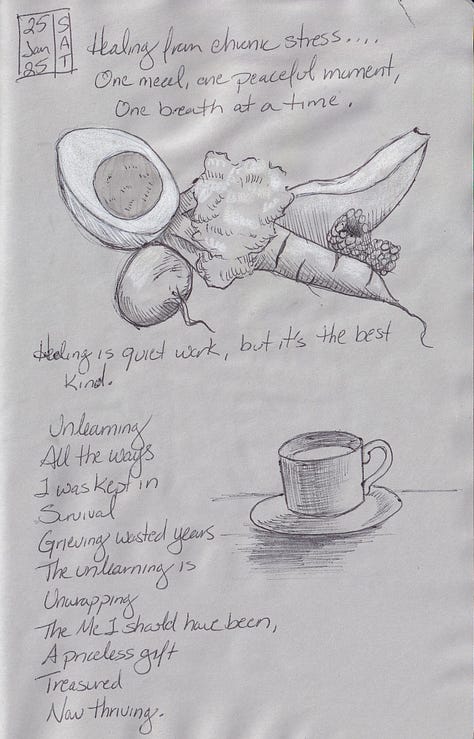 25
Jan
25
SAT
Healing from chronic stress....
One meal, one peaceful moment,
One breath at a time.
Healing is quiet work, but it's the best
kind.
Unlearning
All the ways
I was kept in
Survival
Grieving wasted years
The unlearning is
Unwrapping
The Me I should have been,
A priceless gift
Treasured
Now thriving.